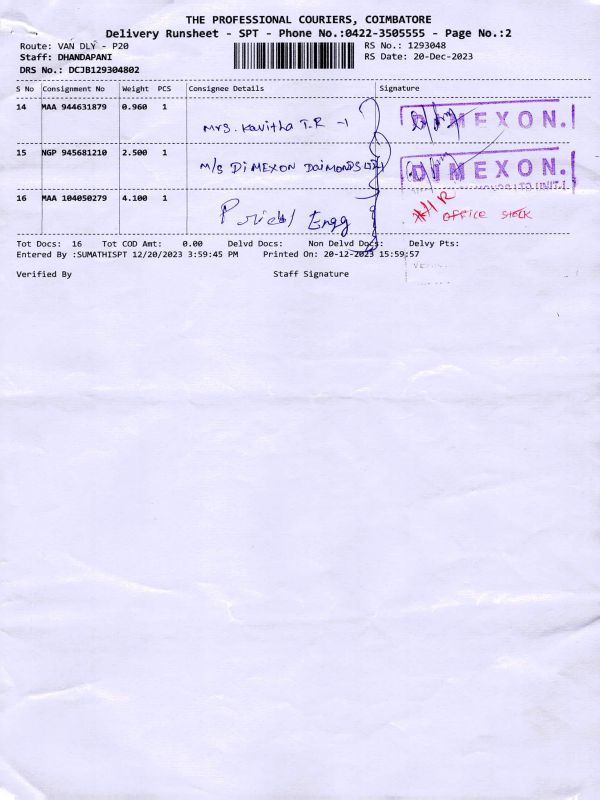 THE PROFESSIONAL COURIERS, COIMBATORE
Delivery Runsheet - SPT - Phone No.:0422-3505555 - Page No.:2
Route: VAN DLY - P20 RS No.: 1293048
Staff: DHANDAPANI RS Date: 20-Dec-2023
DRS No.: DCJB129304802
S No Consignment No Weight PCS Consignee Details Signature
14 MAA 944631879 0.960 1 Mrs. Kavitha T.R -1 DIMEXON.
15 NGP 945681210 2.500 1 M/s DiMEXON DaiMONDS LTD DIMEXON.
16 MAA 104050279 4.100 1 Engg OFFICE STOCK
Tot Docs: 16 Tot COD Amt: 0.00 Delvd Docs: Non Delvd Docs: Delvy Pts:
Entered By :SUMATHISPT 12/20/2023 3:59:45 PM Printed On: 20-12-2023 15:59:57
Verified By Staff Signature